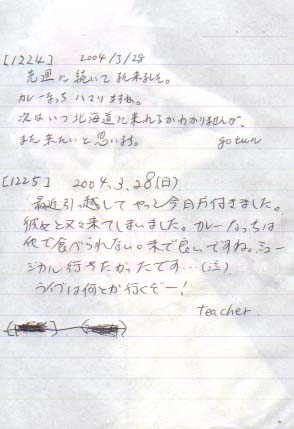 [1224] 2004/3/28
先週に続いてまた来ました。
カレーなっち ハマりますね。
次はいつ北海道に来れるかわかりませんが、
また来たいと思います。 gotun
[1225] 2004.3.28(日)
最近引っ越して やっと今日お付きました。
彼女と又々来てしまいました。カレーなっちは
他で食べられない味で良いですね。ミュー
ジカル行きたかったです…(泣)
ライブは何とか行くぞー!
teacher.